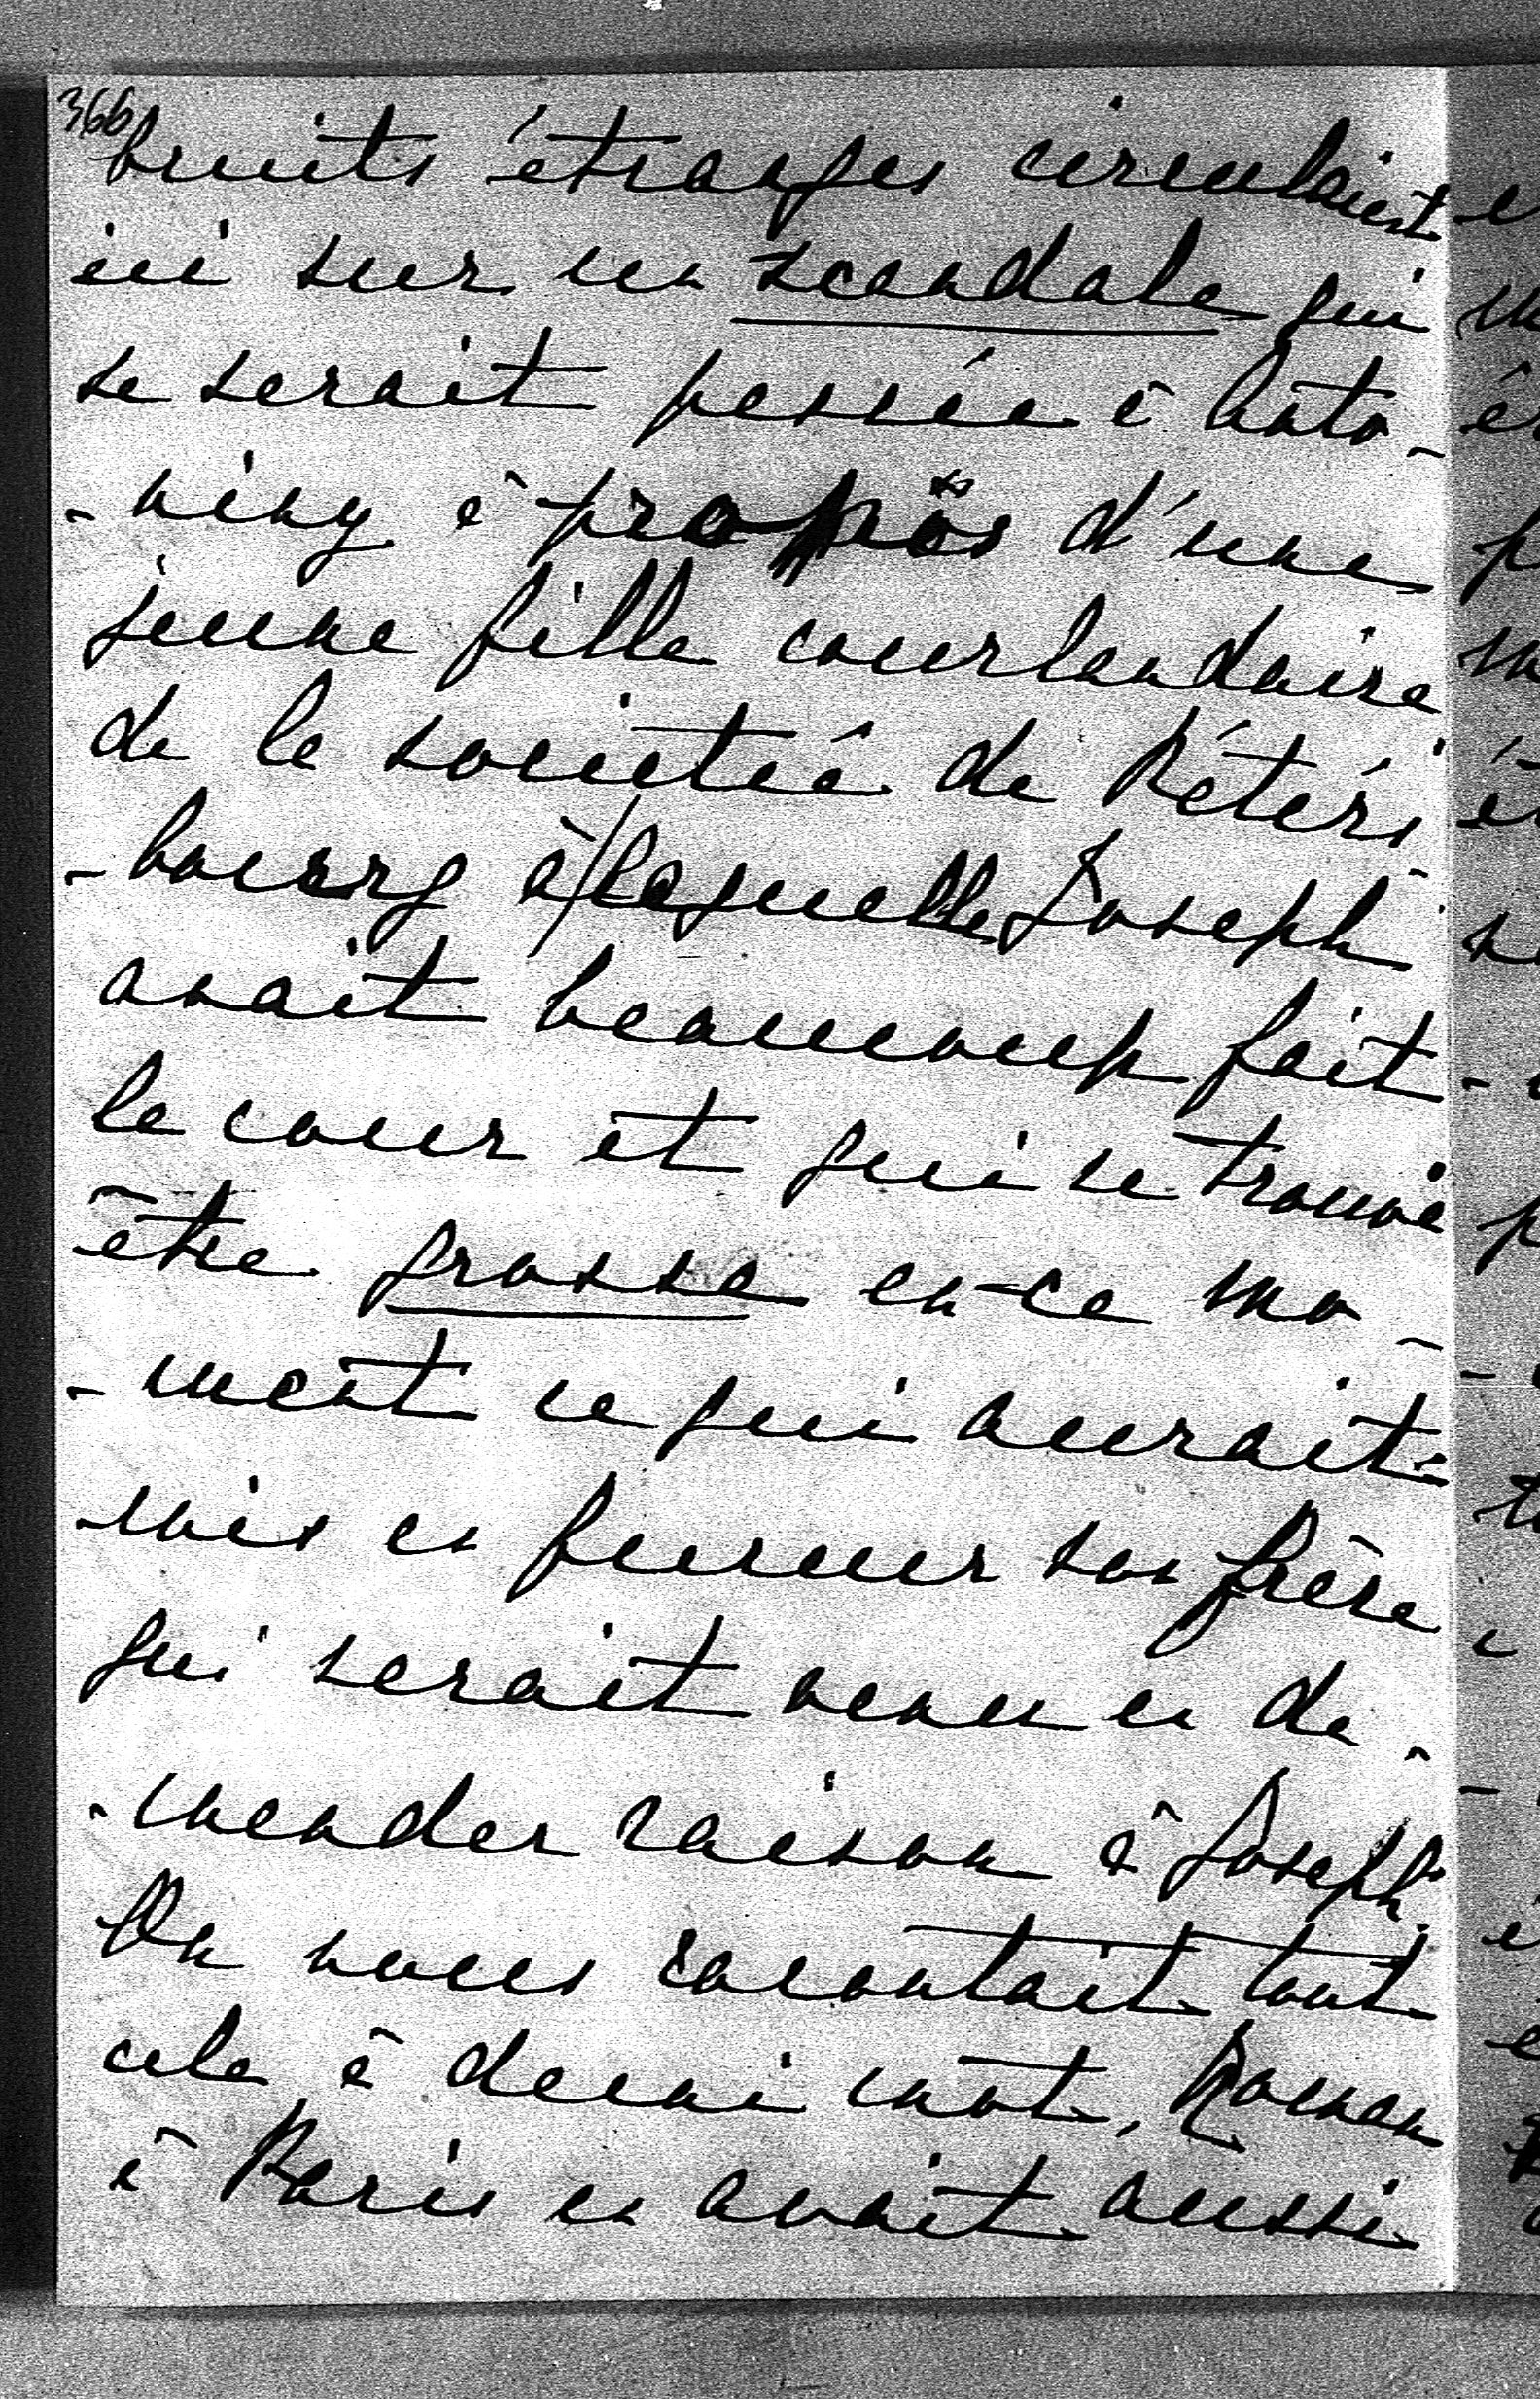 366
bruits étranges circulaient
ici sur un scandale qui
se serait passée à Anto-
-niny à propos d'une
jeune fille courlandaise
de la societée de Péters
-bourg à laquelle Joseph
avait beaucoup fait
la cour et qui se trouve
être grosse en ce mo-
-ment ce qui aurait
mis en fureur son frère
qui serait venu en de-
-mander raison à Joseph.
On nous racontait tout
cela à demi mot, Roman
à Paris en avait aussi